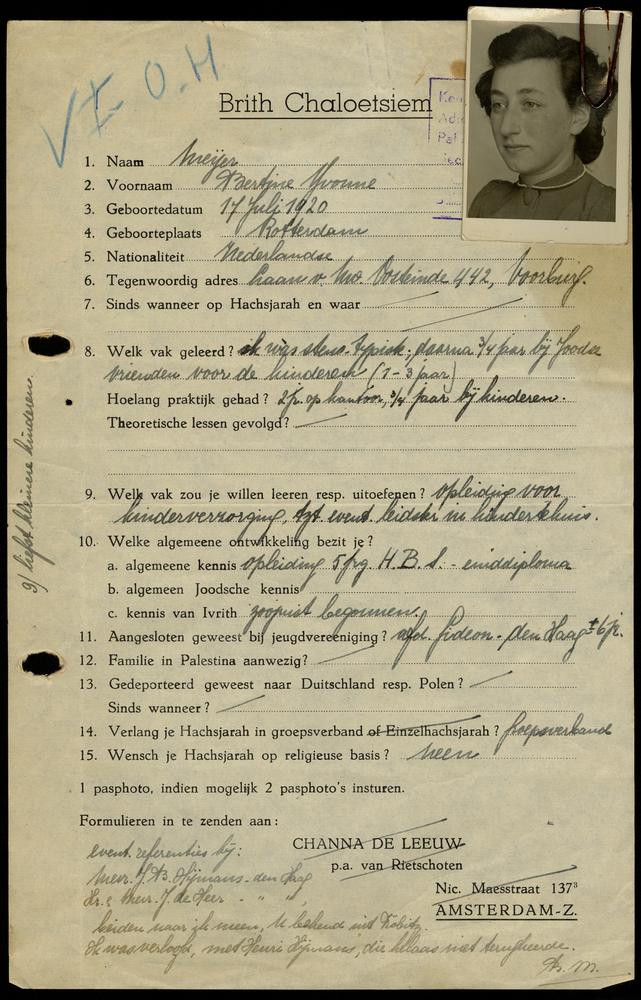 V I O.H.
Brith Chaloetsiem
Ken
Pal
1. Naam Meijer
2. Voornaam Bertine Yvonne
3. Geboortedatum 17 Juli 1920
4. Geboorteplaats Rotterdam
5. Nationaliteit Nederlandse
6. Tegenwoordig adres Laan v. Nw. Oosteinde 442, Voorburg.
7. Sinds wanneer op Hachsjarah en waar
8. Welk vak geleerd? ik was steno-typiste; daarna 3/4 jaar bij Joodse
vrienden voor de kinderen (1-3 jaar)
Hoelang praktijk gehad? 2 jr. op kantoor, 3/4 jaar bij kinderen.
Theoretische lessen gevolgd?
9. Welk vak zou je willen leeren resp. uitoefenen? opleiding voor
kinderverzorging, tzt event. leidster in kindertehuis.
9) liefst kleinere kinderen.
10. Welke algemeene ontwikkeling bezit je?
a. algemeene kennis opleiding 5 jrg. H.B.S. - einddiploma
b. algemeen Joodsche kennis
c. kennis van Ivrith zoojuist begonnen.
11. Aangesloten geweest bij jeugdvereeniging? afd. Gideon - den Haag ± 6 jr.
12. Familie in Palestina aanwezig?
13. Gedeporteerd geweest naar Duitschland resp. Polen?
Sinds wanneer?
14. Verlang je Hachsjarah in groepsverband of Einzelhachsjarah? Groepsverband
15. Wensch je Hachsjarah op religieuse basis? neen
1 pasphoto, indien mogelijk 2 pasphoto's insturen.
Formulieren in te zenden aan:
CHANNA DE LEEUW
p.a. van Rietschoten
Nic. Maesstraat 137³
AMSTERDAM-Z.
event. referenties bij:
Mevr. J. B. Hijmans - den Haag
Hr. & Mevr. J. de Heer - " "
beiden naar ik meen, U bekend uit
Ik was verloofd, met Henri Hijmans, die helaas niet terugkeerde.
B. M.